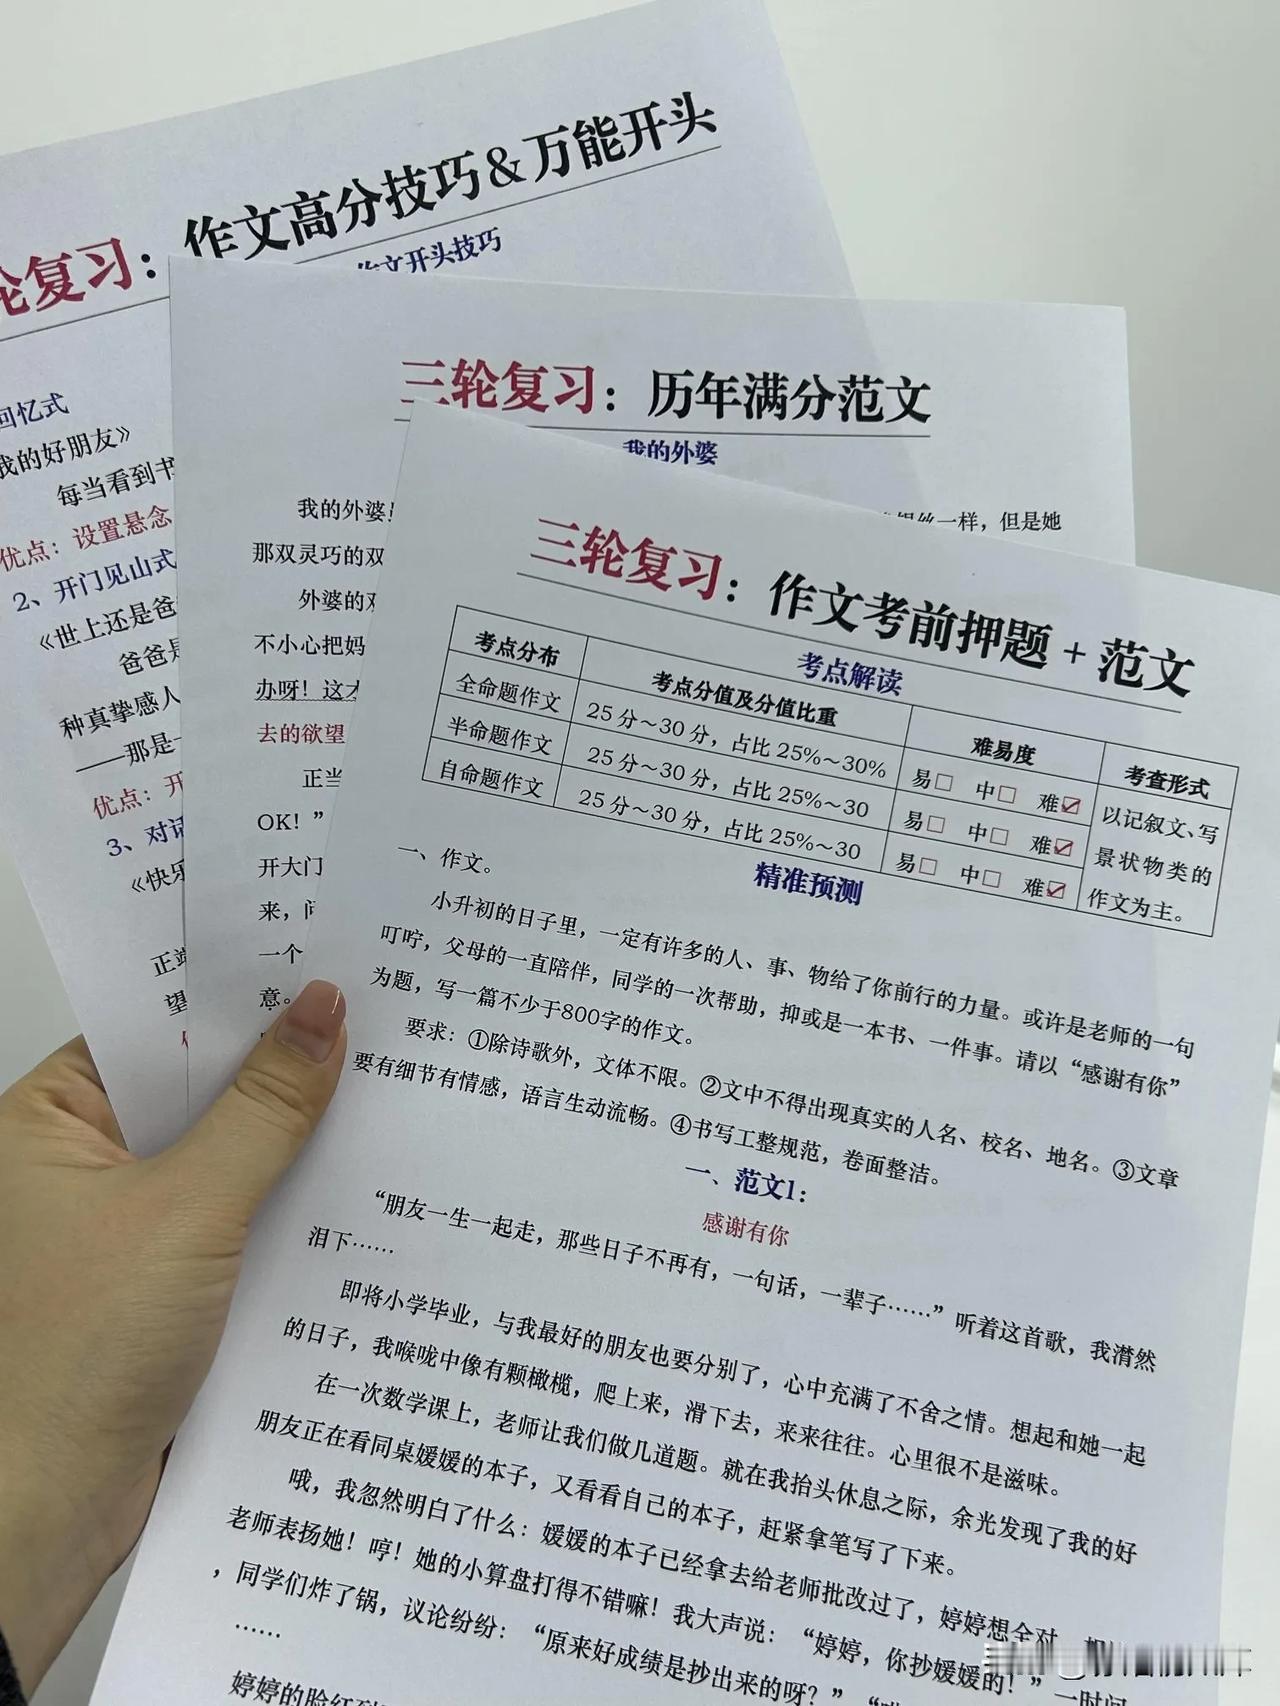 轮复习：作文高分技巧&万能开头
作文开头技巧
回忆式
我的好朋友》
每当看到书
优点：设置悬念
2、开门见山式
《世上还是爸
爸爸是
种真挚感人
——那是一
优点：开
3、对话
《快乐
正端
望
三轮复习：历年满分范文
我的外婆
我的外婆
一样，但是她
那双灵巧的双
外婆的双
不小心把妈
办呀！这才
去的欲望
正当
OK！”
开大门
来，问
一个
意。
三轮复习：作文考前押题+范文
考点解读
考点分布 考点分值及分值比重 难易度 考查形式
全命题作文 25分～30分，占比25%～30% 易□ 中□ 难☑ 以记叙文、写
半命题作文 25分～30分，占比25%～30 易□ 中□ 难☑ 景状物类的
自命题作文 25分～30分，占比25%～30 易□ 中□ 难☑ 作文为主。
精准预测
一、作文。
小升初的日子里，一定有许多的人、事、物给了你前行的力量。或许是老师的一句
叮咛，父母的一直陪伴，同学的一次帮助，抑或是一本书、一件事。请以“感谢有你”
为题，写一篇不少于800字的作文。
要求：①除诗歌外，文体不限。②文中不得出现真实的人名、校名、地名。③文章
要有细节有情感，语言生动流畅。④书写工整规范，卷面整洁。
一、范文1：
感谢有你
“朋友一生一起走，那些日子不再有，一句话，一辈子……”听着这首歌，我潸然
泪下……
即将小学毕业，与我最好的朋友也要分别了，心中充满了不舍之情。想起和她一起
的日子，我喉咙中像有颗橄榄，爬上来，滑下去，来来往往。心里很不是滋味。
在一次数学课上，老师让我们做几道题。就在我抬头休息之际，余光发现了我的好
朋友正在看同桌媛媛的本子，又看看自己的本子，赶紧拿笔写了下来。
哦，我忽然明白了什么：媛媛的本子已经拿去给老师批改过了，婷婷想全对，想
老师表扬她！哼！她的小算盘打得不错嘛！我大声说：“婷婷，你抄媛媛的！”一时间
，同学们炸了锅，议论纷纷：“原来好成绩是抄出来的呀？”
……
婷婷的脸红